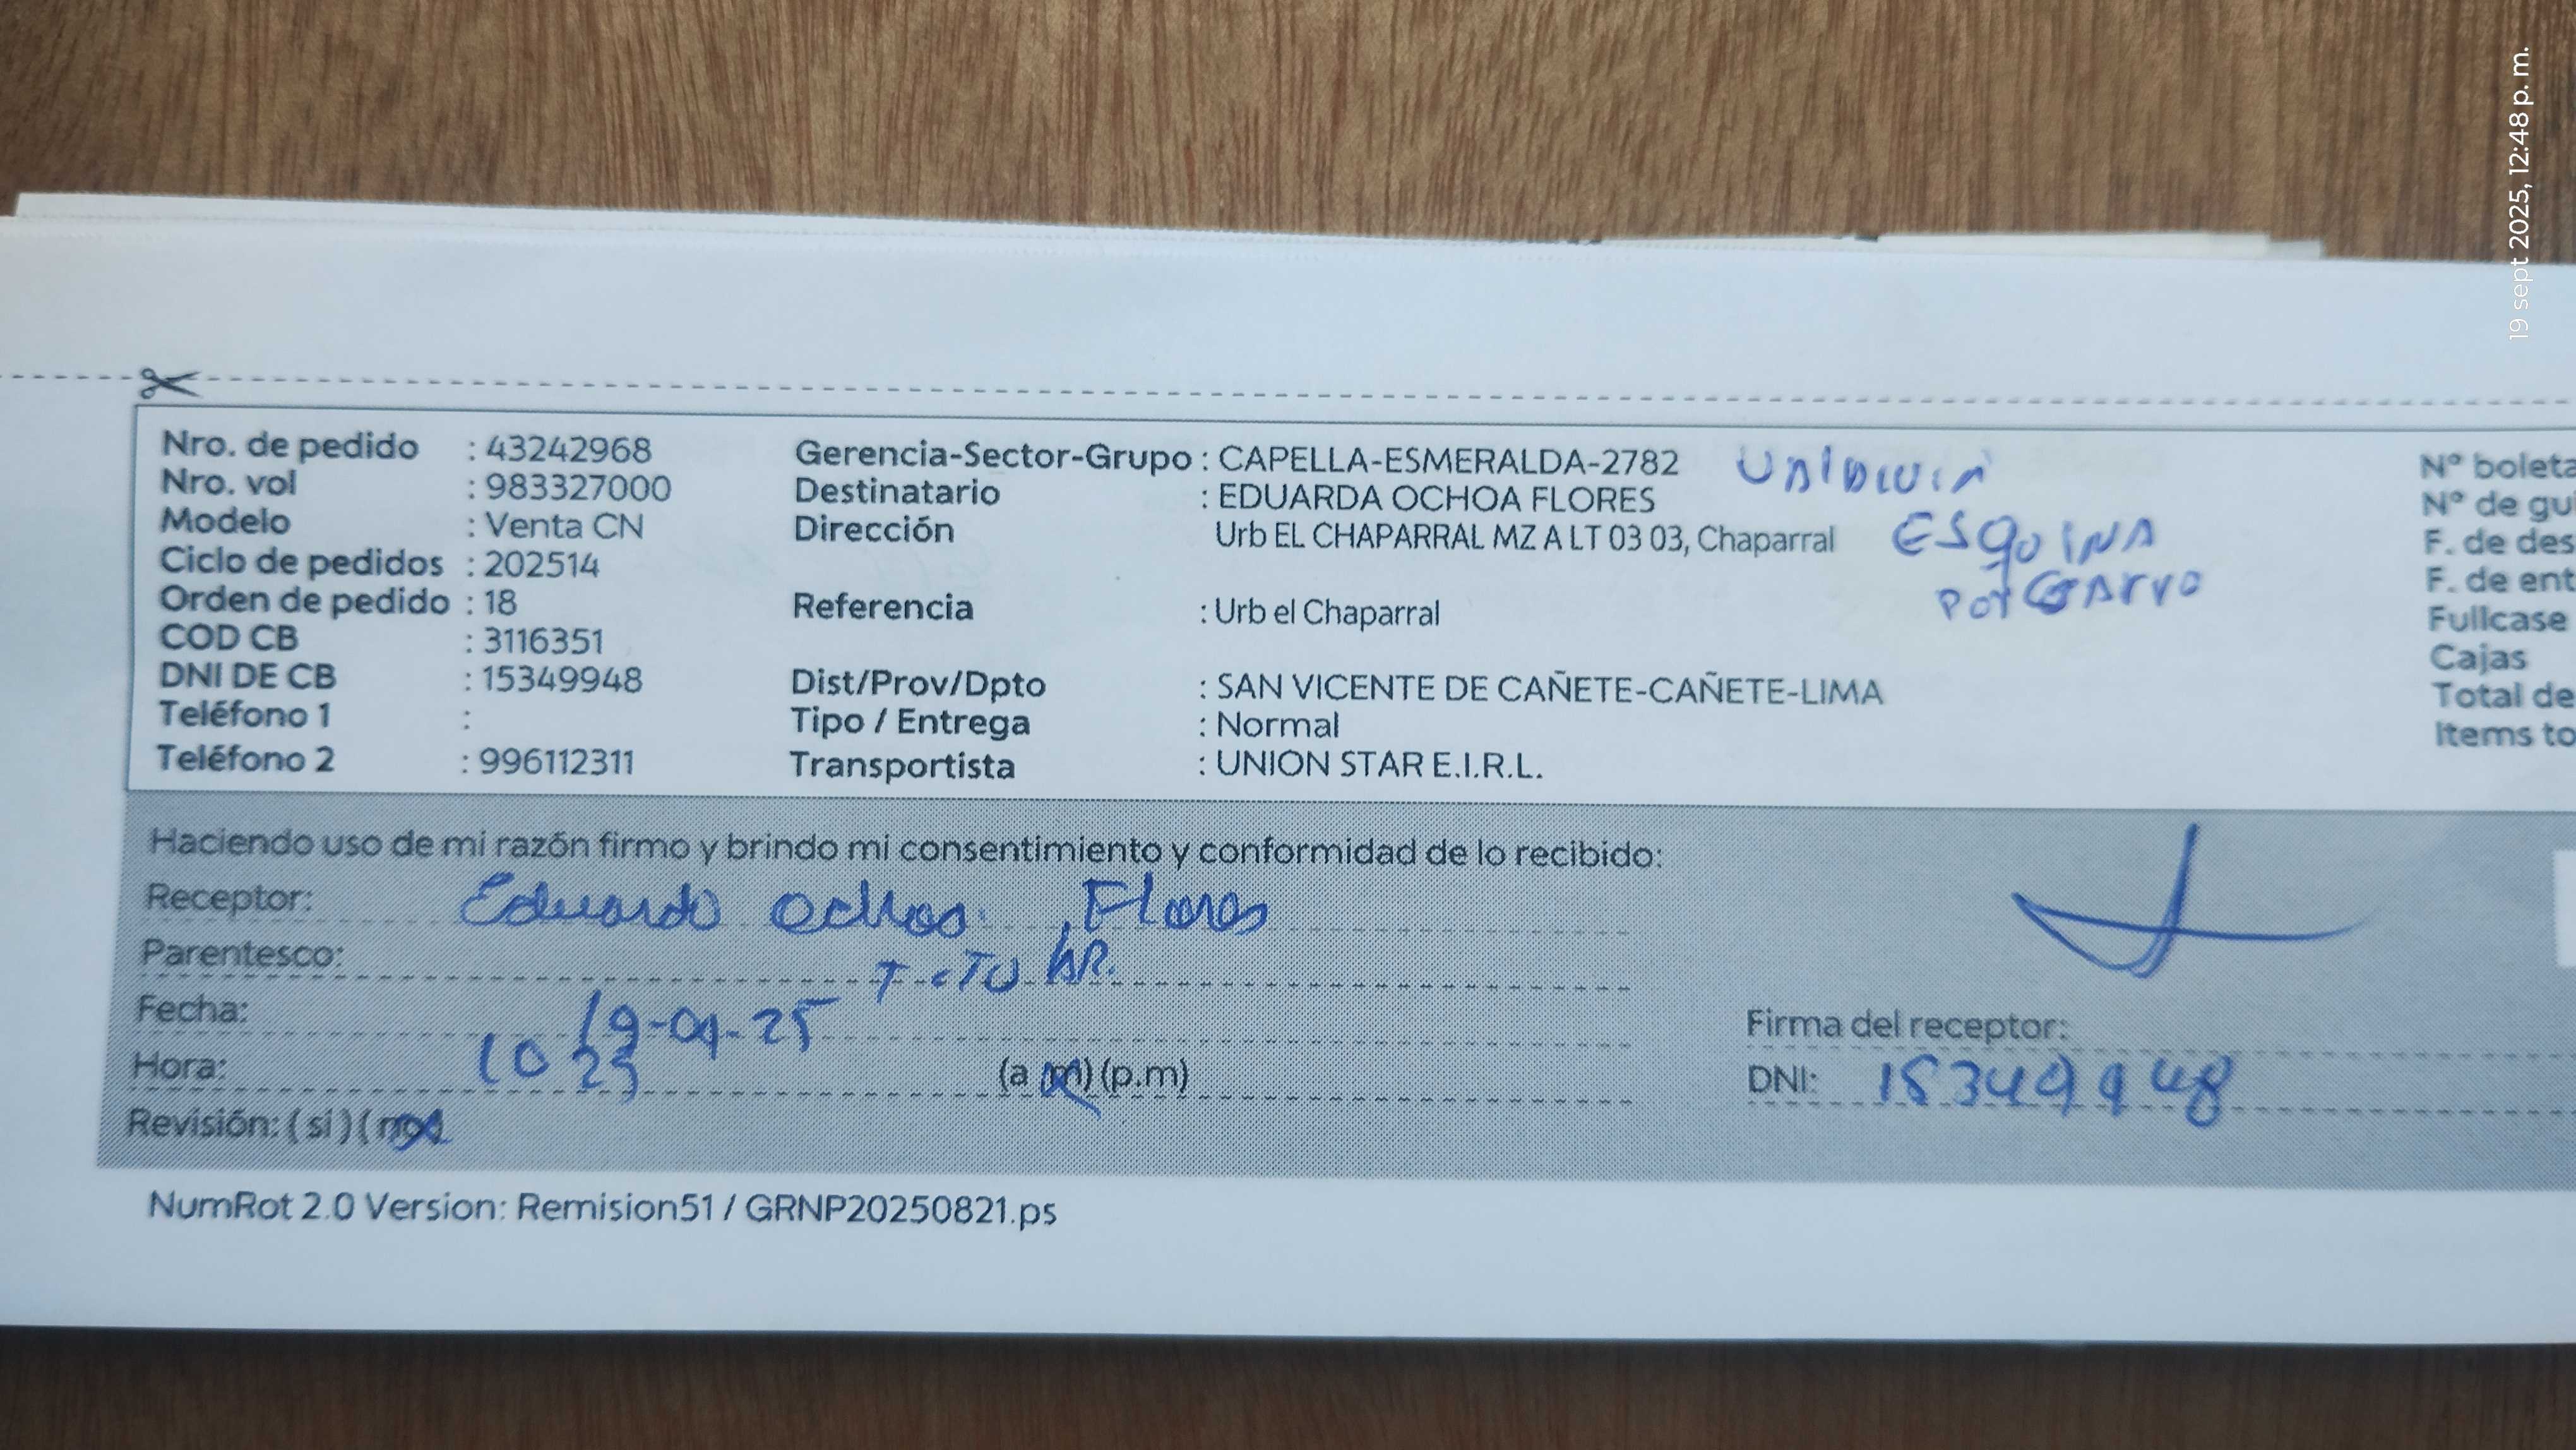 19 sept 2025, 12:48 p. m.
Nro. de pedido : 43242968
Nro. vol : 983327000
Modelo : Venta CN
Ciclo de pedidos : 202514
Orden de pedido : 18
COD CB : 3116351
DNI DE CB : 15349948
Teléfono 1 :
Teléfono 2 : 996112311
Gerencia-Sector-Grupo : CAPELLA-ESMERALDA-2782
Destinatario : EDUARDA OCHOA FLORES
Dirección Urb EL CHAPARRAL MZ A LT 03 03, Chaparral
Referencia : Urb el Chaparral
Dist/Prov/Dpto : SAN VICENTE DE CAÑETE-CAÑETE-LIMA
Tipo / Entrega : Normal
Transportista : UNION STAR E.I.R.L.
ESquINA
N° boleta
N° de gu
F. de des
F. de ent
Fullcase
Cajas
Total de
Items to
Haciendo uso de mi razón firmo y brindo mi consentimiento y conformidad de lo recibido:
Receptor: Eduardo Ochoa Flores
Parentesco:
Fecha: 19-09-25
Hora: 10 23 (a m) (p.m)
Revisión: ( si ) ( no )
Firma del receptor:
DNI: 15349948
NumRot 2.0 Version: Remision51 / GRNP20250821.ps